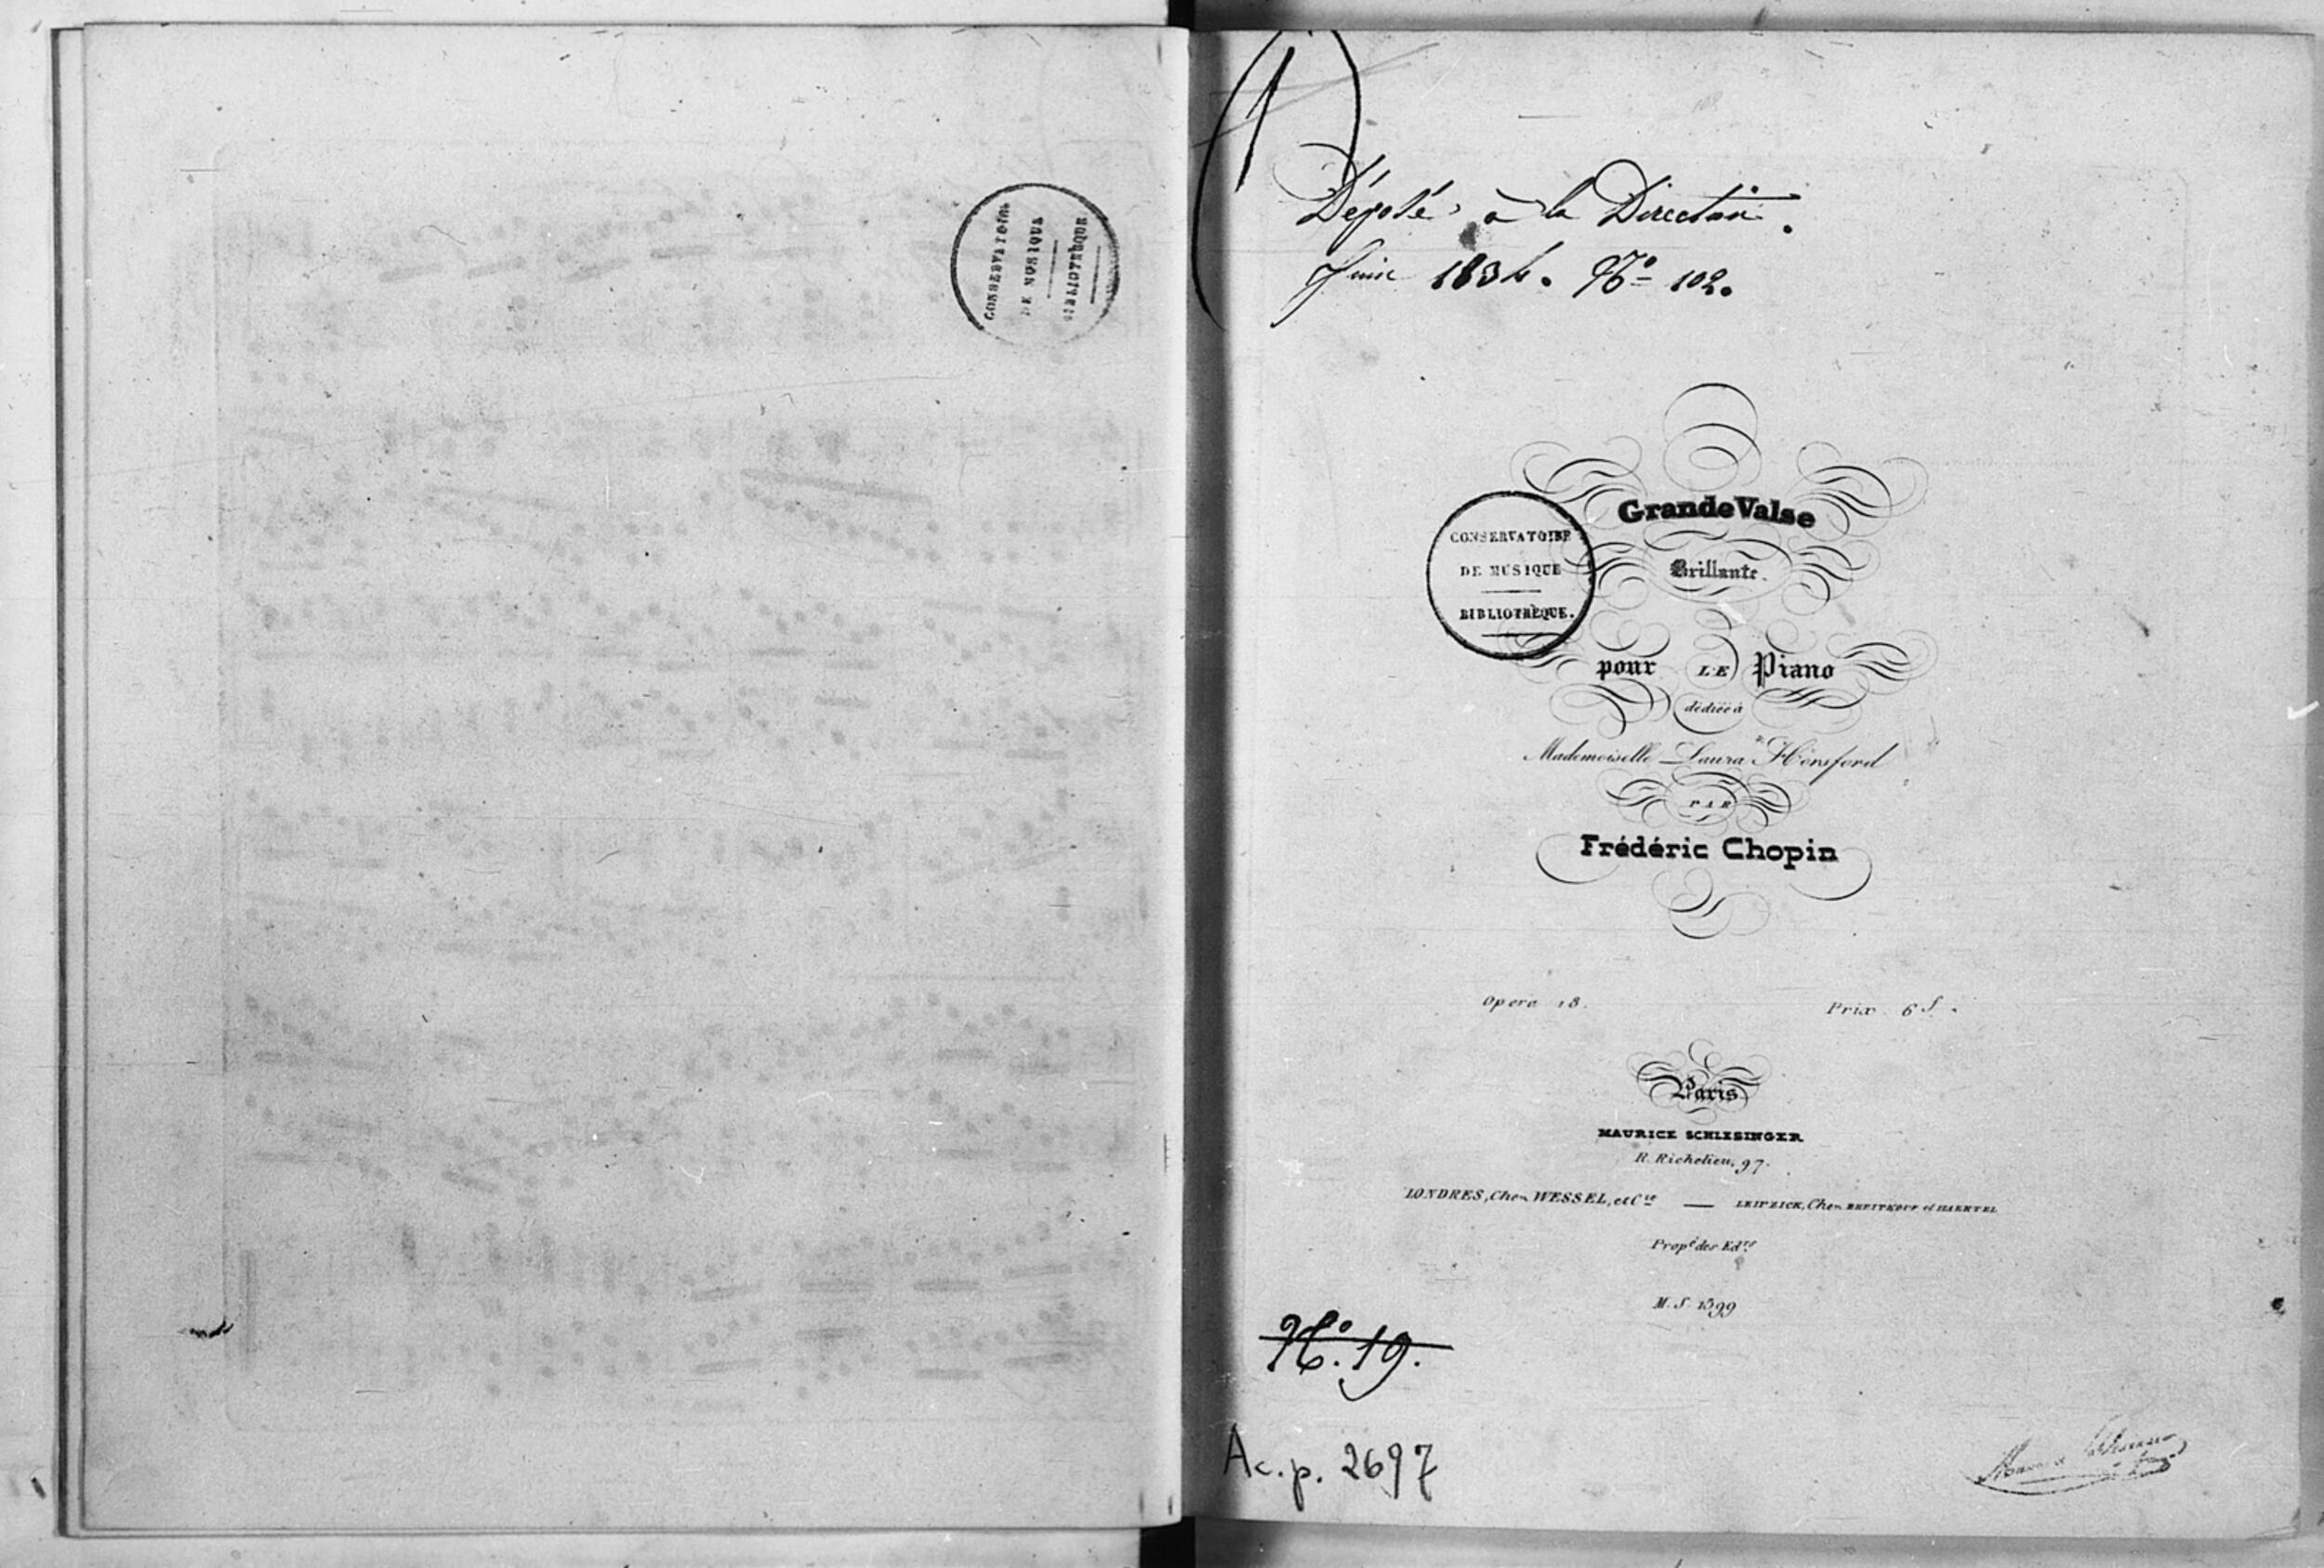 CONSERVATOIRE
DE MUSIQUE
BIBLIOTHÈQUE
1
108
Déposé à la Direction.
Juin 1834. Nº 102.
Grande Valse
Brillante.
CONSERVATOIRE
DE MUSIQUE
BIBLIOTHÈQUE.
pour LE Piano
dédiée à
Mademoiselle Laura Horsford
PAR
Frédéric Chopin
Opera 18. Prix 6 f.
Paris
MAURICE SCHLESINGER
R. Richelieu, 97.
LONDRES, Chez WESSEL, et Cie — LEIPZICK, Chez BREITKOPF et HAERTEL
Propé des Edrs
M. S. 1599
Nº. 19.
Ac. p. 2697
Maurice Schlesinger